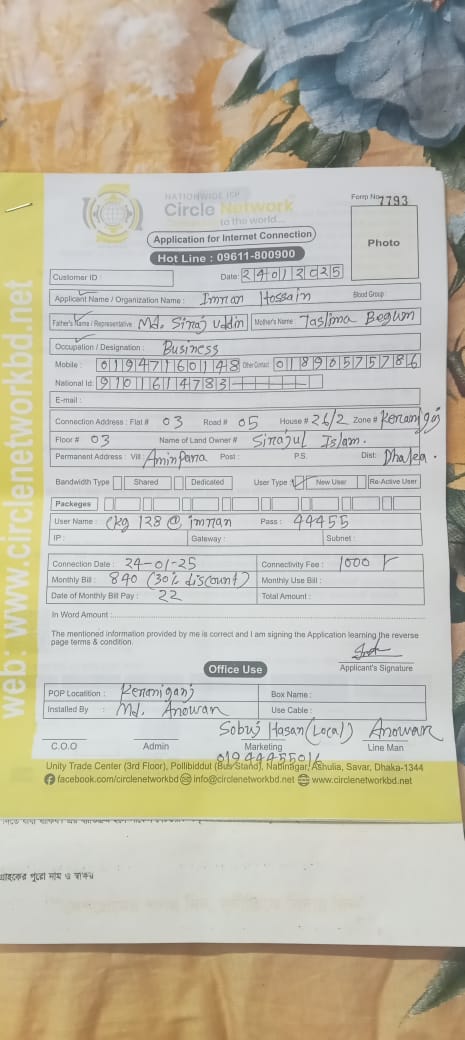 NATIONWIDE ISP
Circle Network
to the world...
Form No 7793
Application for Internet Connection
Hot Line : 09611-800900
Photo
Customer ID :
Date: 24012025
Applicant Name / Organization Name : Imran Hossain Blood Group :
Father's Name / Representative : Md. Siraj Uddin Mother's Name : Taslima Begum
Occupation / Designation : Business
Mobile : 01947160148 Other Contact 01890575786
National Id: 9101614783
E-mail :
Connection Address : Flat # 03 Road # 05 House # 26/2 Zone # Keranigonj
Floor # 03 Name of Land Owner # Sirajul Islam.
Permanent Address : Vill : Aminpara Post : P.S. Dist: Dhaka.
Bandwidth Type Shared Dedicated User Type New User Re-Active User
Packeges
User Name : ckg 128@imran Pass : 44455
IP : Gateway : Subnet :
Connection Date : 24-01-25 Connectivity Fee : 1000
Monthly Bill : 840 (30% discount) Monthly Use Bill :
Date of Monthly Bill Pay : 22 Total Amount :
In Word Amount :
The mentioned information provided by me is correct and I am signing the Application learning the reverse
page terms & condition.
Applicant's Signature
Office Use
POP Locatition : Keraniganj Box Name :
Installed By : Md. Anowar Use Cable :
Sobuj Hasan (Local) Anowar
C.O.O Admin Marketing Line Man
01944455016
Unity Trade Center (3rd Floor), Pollibiddut (Bus Stand), Nabinagar, Ashulia, Savar, Dhaka-1344
facebook.com/circlenetworkbd info@circlenetworkbd.net www.circlenetworkbd.net
web: www.circlenetworkbd.net
গ্রাহকের পুরো নাম ও স্বাক্ষর